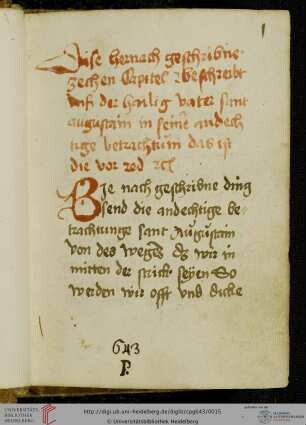 1
Dise hernach geschribne
zechen Capitel beschreibt
uns der hailig vater sant
augustain in seiner andech
tige betrachtum das ist
die vor red rcl
Die nach geschribne ding
send die andechtige be
trachtunge sant Augustain
von des weges ds wir in
mitten der strick seyen So
werden wir offt vnd dicke
643
P.
UNIVERSITÄTS-
BIBLIOTHEK
HEIDELBERG
http://digi.ub.uni-heidelberg.de/diglit/cpg643/0015
© Universitätsbibliothek Heidelberg
gefördert von der